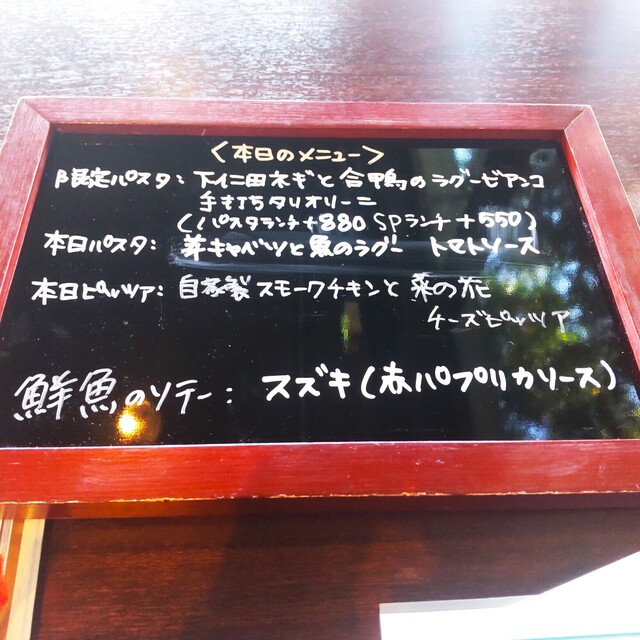 〈本日のメニュー〉
限定パスタ: 下仁田ネギと合鴨のラグービアンコ
手打ちタリオリーニ
(パスタランチ+880 SPランチ+550)
本日パスタ: 芽キャベツと魚のラグー トマトソース
本日ピッツァ: 自家製スモークチキンと菜の花
チーズピッツァ
鮮魚のソテー: スズキ(赤パプリカソース)